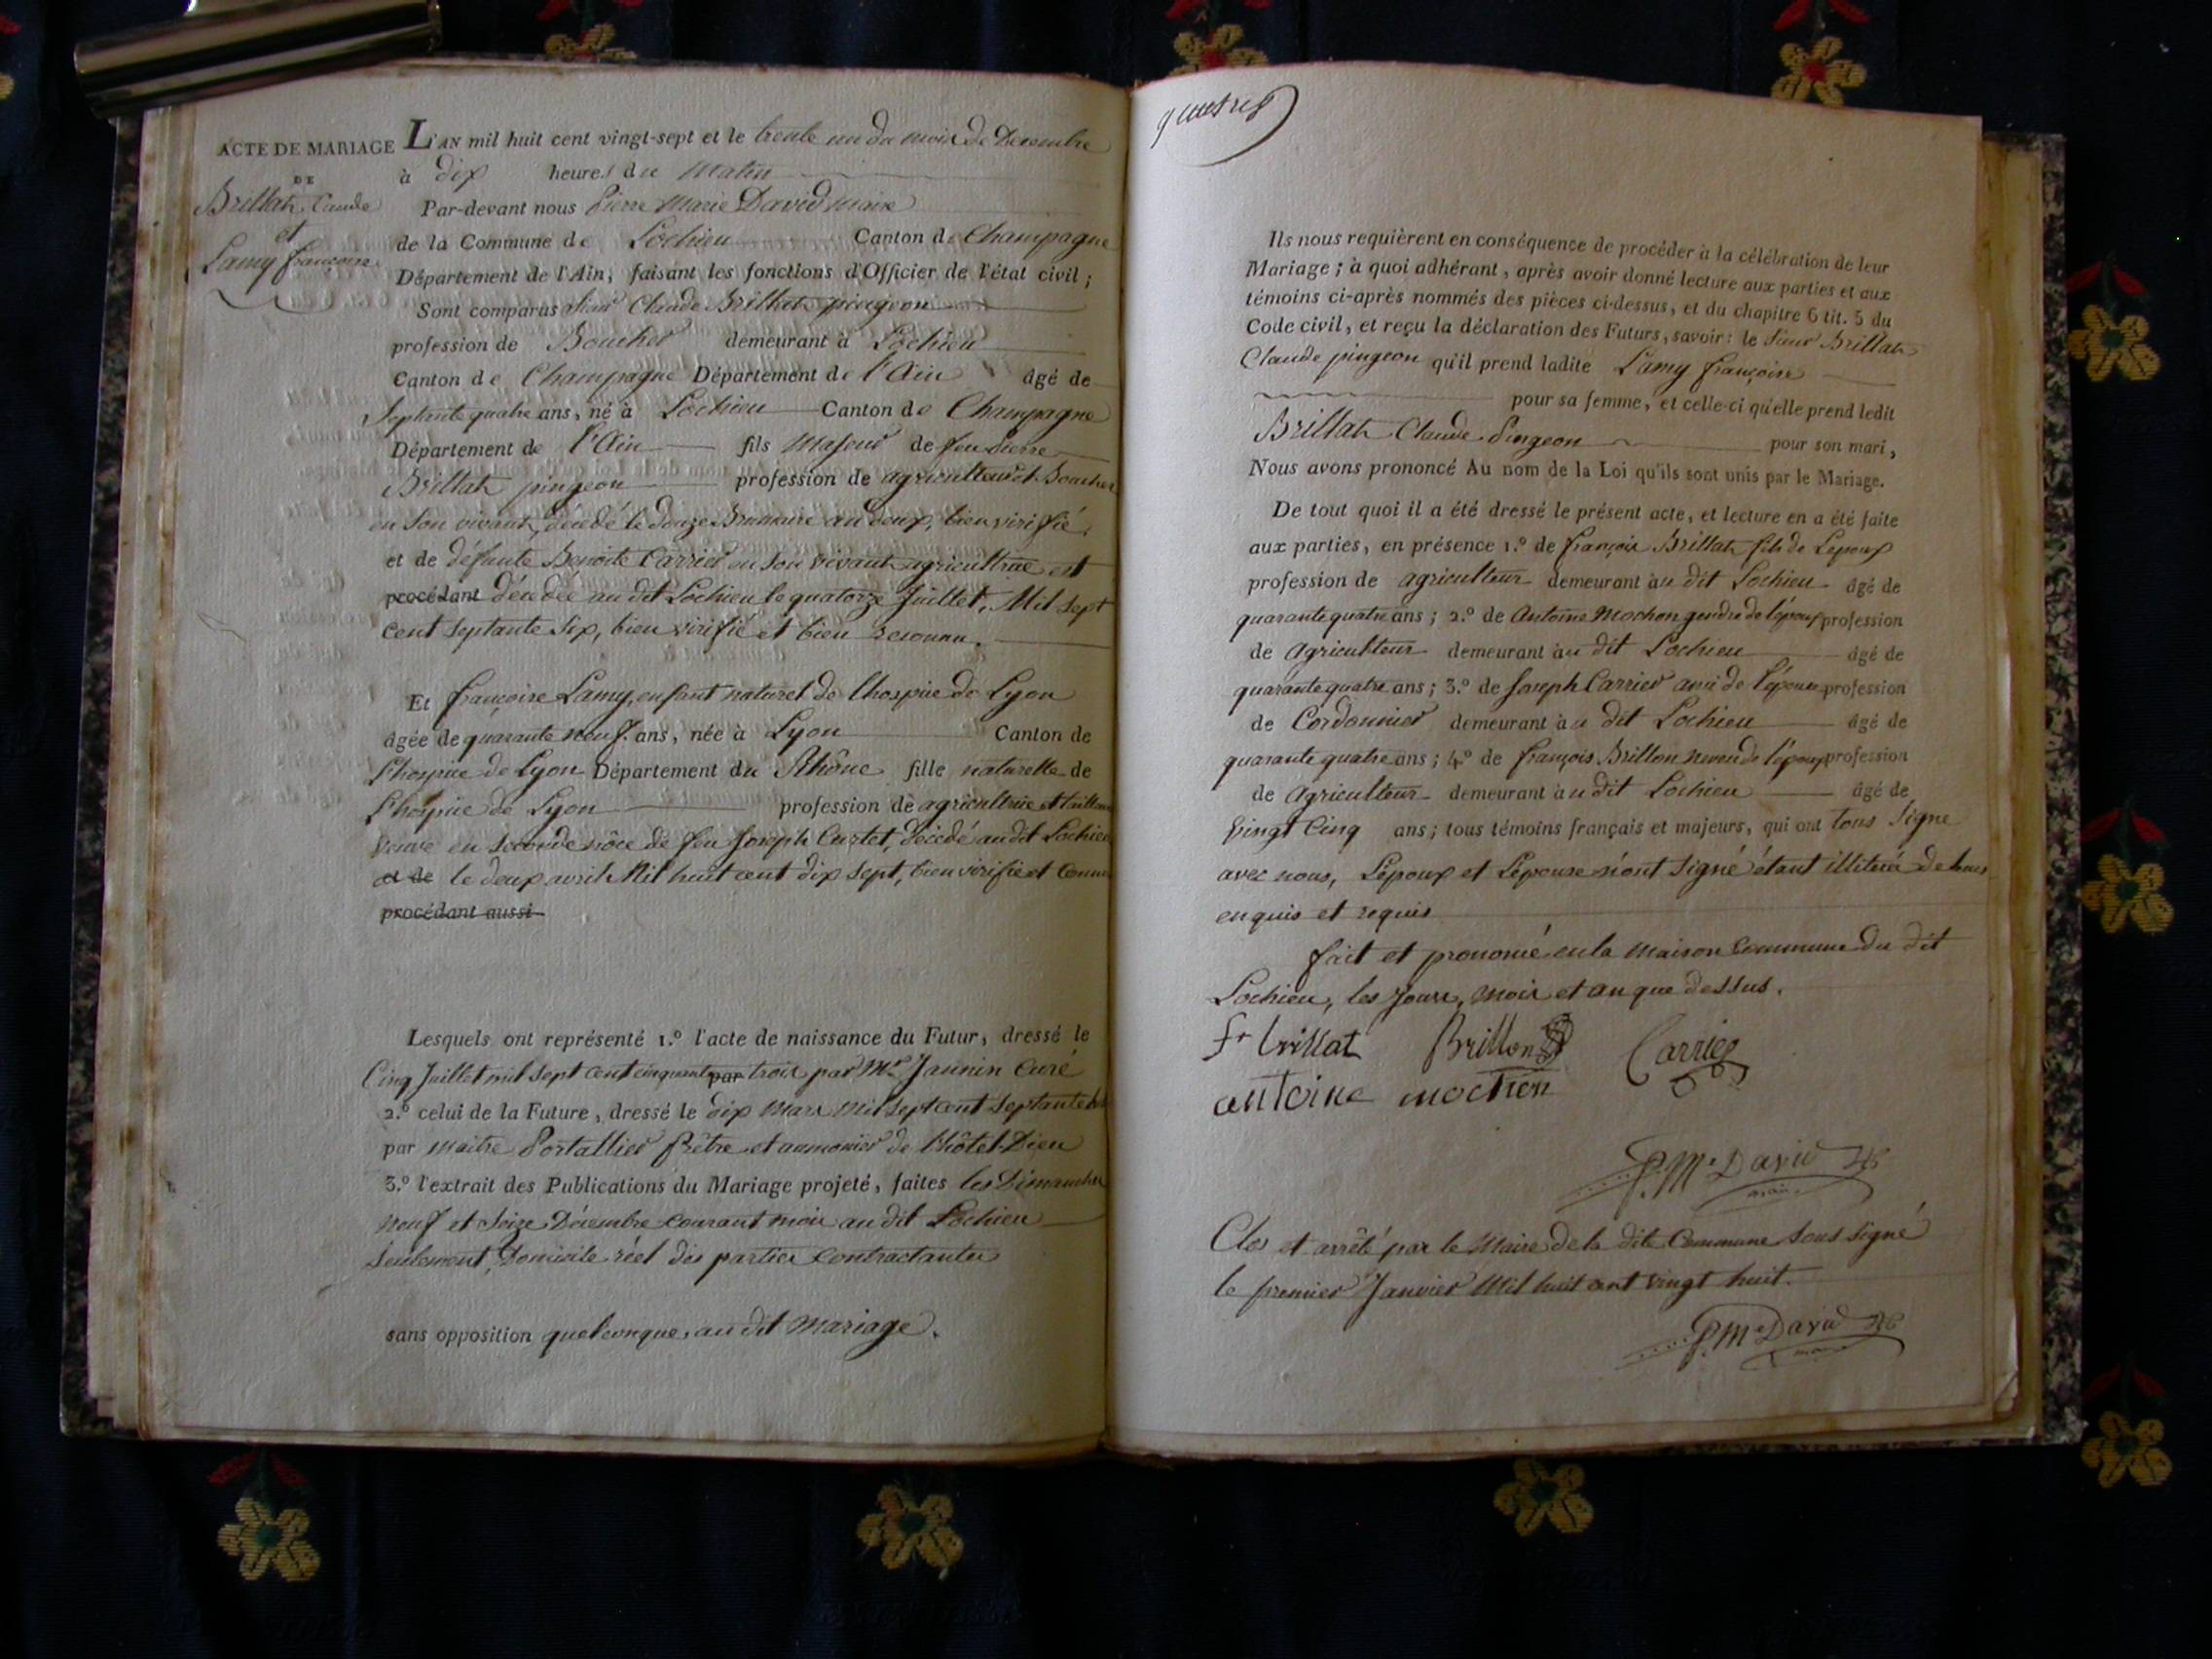 ACTE DE MARIAGE
DE
Brillat, Claude
et
Lamy françoise
L'AN mil huit cent vingt-sept et le trente un du mois de Decembre
à dix heures du Matin
Par-devant nous Pierre Marie David Maire
de la Commune de Lochieu Canton de Champagne
Département de l'Ain, faisant les fonctions d'Officier de l'état civil ;
Sont comparus Sieur Claude Brillat pingeon
profession de Boucher demeurant à Lochieu
Canton de Champagne Département de l'Ain âgé de
Septante quatre ans, né à Lochieu Canton de Champagne
Département de l'Ain fils Majeur de feu Pierre
Brillat pingeon profession de agriculteur et Boucher
en Son vivant, décédé le douze Brumaire an deux, bien virifié,
et de défunte Benoite Carrier en Son vivant agricultrice est
procédant décédée au dit Lochieu le quatorze Juillet, Mil Sept
cent Septante Six, bien virifié et bien reconnu.
Et françoise Lamy, enfant naturel de l'hospice de Lyon
âgée de quarante neuf ans, née à Lyon Canton de
l'hospice de Lyon Département du Rhône fille naturelle de
l'hospice de Lyon profession de agricultrice et
Veuve en Seconde nôce de feu Joseph Curtet, décédé au dit Lochieu
et de le deux avril Mil huit cent dix Sept, bien virifié et connu
procédant aussi
Lesquels ont représenté 1.º l'acte de naissance du Futur, dressé le
Cinq Juillet mil Sept cent cinquante par trois par Mre Jannin Curé
2.º celui de la Future, dressé le dix Mars Mil Sept cent Septante huit
par Maitre Portallier Prêtre et aumonier de l'hôtel-Dieu
3.º l'extrait des Publications du Mariage projeté, faites les Dimanches
Neuf et Seize Décembre courant mois au dit Lochieu
Seulement, Domicile réel des parties contractantes
sans opposition quelconque, au dit Mariage.
Ils nous requièrent en conséquence de procéder à la célébration de leur
Mariage ; à quoi adhérant, après avoir donné lecture aux parties et aux
témoins ci-après nommés des pièces ci-dessus, et du chapitre 6 tit. 5 du
Code civil, et reçu la déclaration des Futurs, savoir : le Sieur Brillat
Claude pingeon qu'il prend ladite Lamy françoise
pour sa femme, et celle-ci qu'elle prend ledit
Brillat Claude Pingeon pour son mari,
Nous avons prononcé Au nom de la Loi qu'ils sont unis par le Mariage.
De tout quoi il a été dressé le présent acte, et lecture en a été faite
aux parties, en présence 1.º de françois Brillat fils de Lepoux
profession de agriculteur demeurant au dit Lochieu âgé de
quarante quatre ans ; 2.º de Antoine Mochon gendre de l'époux profession
de Agriculteur demeurant au dit Lochieu âgé de
quarante quatre ans ; 3.º de Joseph Carrier ami de l'épouse profession
de Cordonnier demeurant au dit Lochieu âgé de
quarante quatre ans ; 4.º de françois Brillon neveu de l'époux profession
de Agriculteur demeurant au dit Lochieu âgé de
Vingt Cinq ans ; tous témoins français et majeurs, qui ont tous Signé
avec nous, Lépoux et Lépouse n'ont Signé étant illitérés de tous
enquis et requis
fait et prononcé en la Maison Commune du dit
Lochieu, les Jours, Mois et an que dessus.
fr brillat Brillon Carrier
antoine mochon
P. Me David
maire
Clos et arrêté par le Maire de la dite Commune Sous Signé
le premier Janvier Mil huit cent vingt huit.
P. Me David
maire